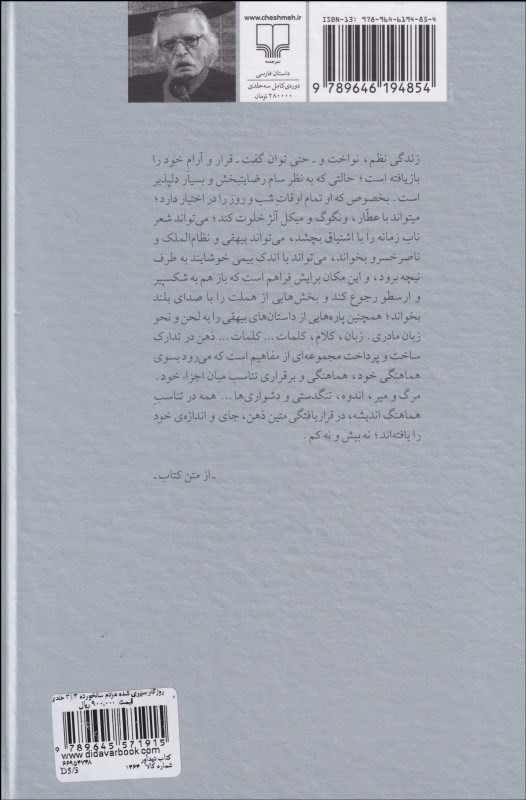 www.cheshmeh.ir
نشرچشمه
داستان فارسی
دوره‌ی کامل سه‌جلدی
۲۸۰۰۰۰ تومان
ISBN-13: ۹۷۸-۹۶۴-۶۱۹۴-۸۵-۴
9 789646 194854
زندگی نظم، نواخت و ـ حتی توان گفت ـ قرار و آرام خود را
بازیافته است؛ حالتی که به نظر سام رضایتبخش و بسیار دلپذیر
است. بخصوص که او تمام اوقات شب و روز را در اختیار دارد؛
میتواند با عطّار، ونگوگ و میکل آنژ خلوت کند؛ می‌تواند شعر
ناب زمانه را با اشتیاق بچشد، می‌تواند بیهقی و نظام‌الملک و
ناصرخسرو بخواند، می‌تواند با اندک بیمی خوشایند به طرف
نیچه برود، و این مکان برایش فراهم است که باز هم به شکسپیر
و ارسطو رجوع کند و بخش‌هایی از هملت را با صدای بلند
بخواند؛ همچنین پاره‌هایی از داستان‌های بیهقی را به لحن و نحو
زبان مادری. زبان، کلام، کلمات... کلمات... ذهن در تدارک
ساخت و پرداخت مجموعه‌ای از مفاهیم است که می‌رود بسوی
هماهنگی خود، هماهنگی و برقراری تناسب میان اجزاء خود.
مرگ و میر، اندوه، تنگدستی و دشواری‌ها... همه در تناسبِ
هماهنگ اندیشه، در قراریافتگی متین ذهن، جای و اندازه‌ی خود
را یافته‌اند؛ نه بیش و نه کم.
ـ از متن کتاب ـ
روزگار سپری شده مردم سالخورده ۳ (۳ جلدی
قیمت: ۹۰۰,۰۰۰ ریال
9 789645 571915
www.didavarbook.com
کتاب دیدآور
۶۶۹۵۴۷۴۸
شماره کالا: ۱۴۶۴
D5/3